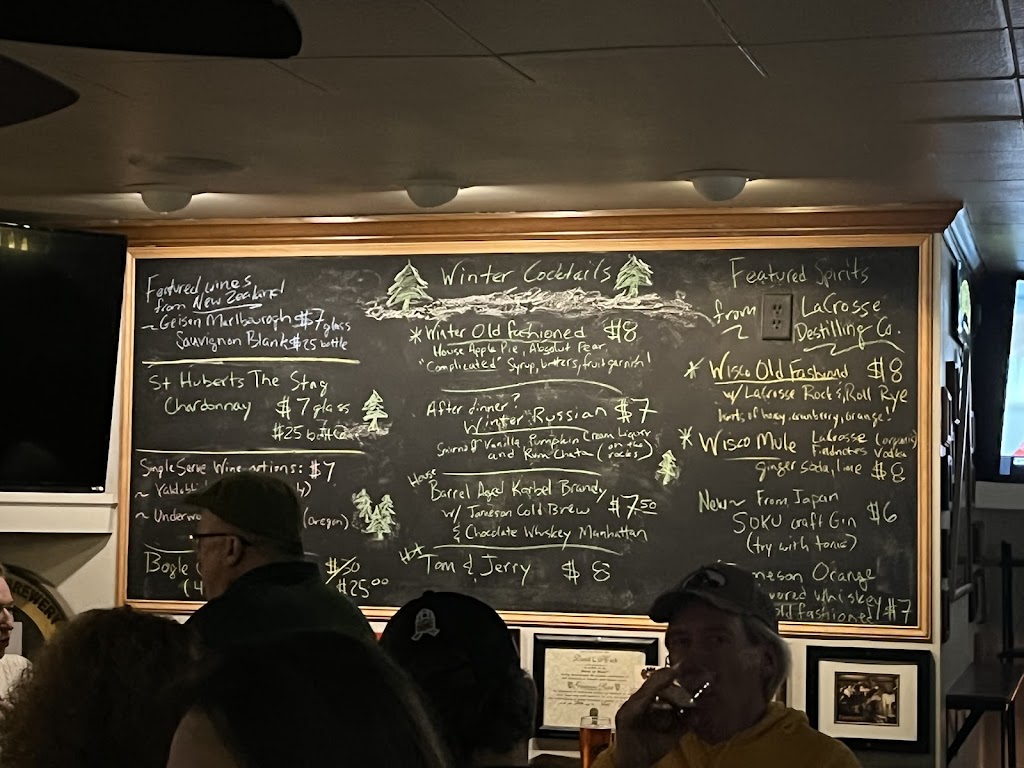 Featured wines
from New Zealand
~ Geisen Marlborough $7 glass
Sauvignon Blank $25 bottle
St Huberts The Stag
Chardonnay $7 glass
$25 bottle
Single Serve Wine options: $7
~
~ Underw (oregon)
Bogle
$25.00
Winter Cocktails
* Winter Old Fashioned $8
House Apple Pie, Absolut Pear,
"Complicated" Syrup, bitters, fruit garnish!
After dinner?
Winter Russian $7
Smirnoff Vanilla, Pumpkin Cream Liquor
and Rum Chata (on the rocks)
House
Barrel Aged Korbel Brandy
w/ Jameson Cold Brew $7.50
& Chocolate Whiskey Manhattan
Hot
Tom & Jerry $8
Featured Spirits
from LaCrosse
Destilling Co.
* Wisco Old Fashioned $8
w/ LaCrosse Rock & Roll Rye
hints of honey, cranberry, orange!
* Wisco Mule LaCrosse (organic)
Fieldnotes Vodka
ginger soda, lime $8
New~ From Japan
SOKU craft Gin $6
(try with tonic)
meson Orange
vored whiskey
old fashioned! $7
BREWERY